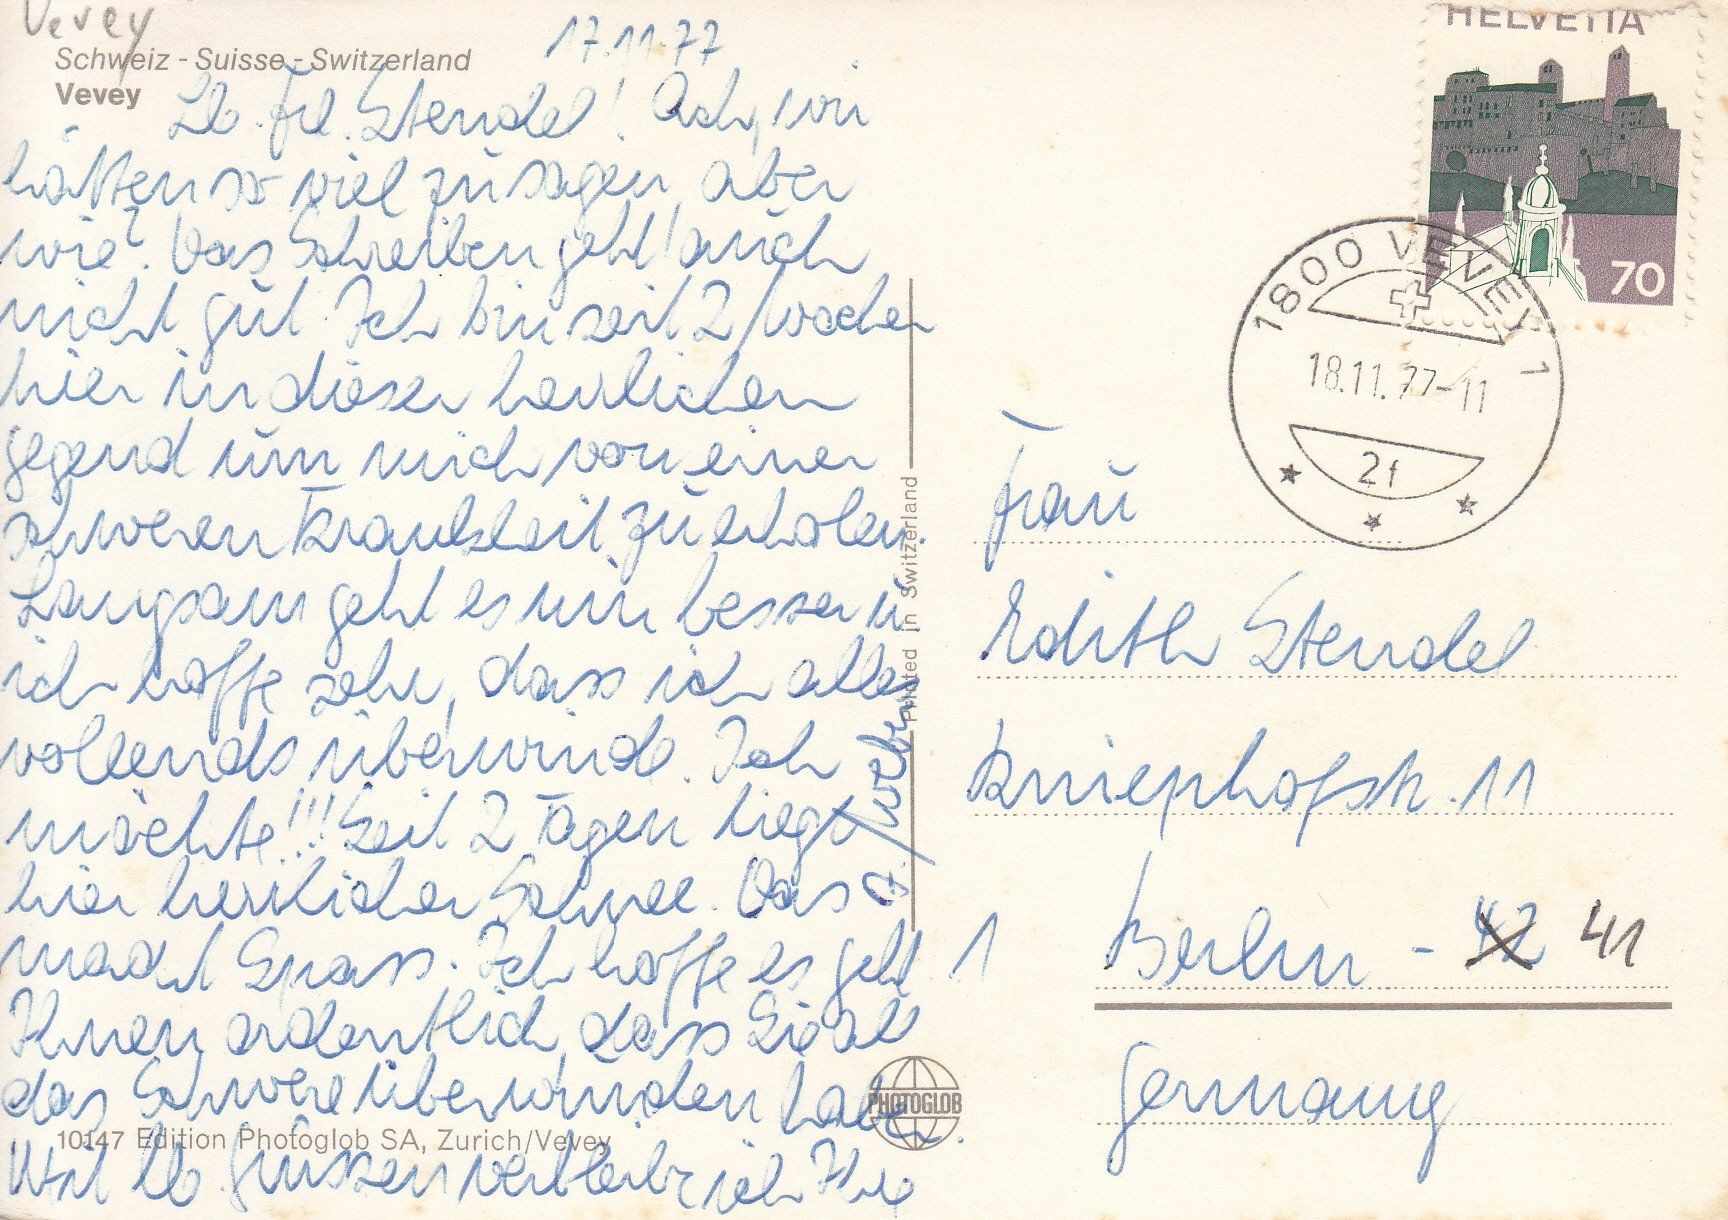 Vevey
Schweiz - Suisse - Switzerland
Vevey
17.11.77
Lb. Frl. Stendel! Ach, wir
hätten so viel zu sagen, aber
wie? Das Schreiben geht auch
nicht gut. Ich bin seit 2 Wochen
hier in dieser herrlichen
Gegend um mich von einer
schweren Krankheit zu erholen.
Langsam geht es mir besser u.
ich hoffe sehr, dass ich alles
vollends überwinde. Ich
möchte!!! Seit 2 Tagen liegt
hier herrlicher Schnee. Das
macht Spass. Ich hoffe es geht
Ihnen ordentlich, dass Sie all
das Schwere überwunden haben.
Mit lb. Grüssen verbleibe ich Ihre
10147 Edition Photoglob SA, Zurich/Vevey
Printed in Switzerland
PHOTOGLOB
HELVETIA
70
1800 VEVEY 1
18.11.77-11
2f
Frau
Edith Stendel
Kniephofstr. 11
1 Berlin - 42 41
Germany